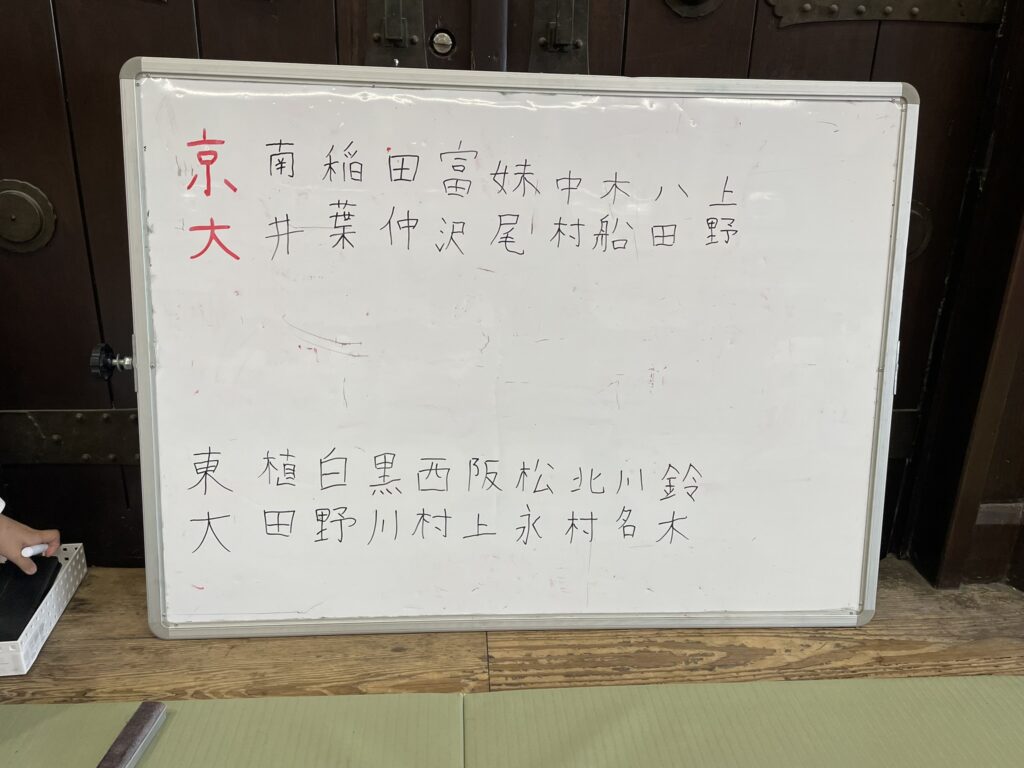 京大
南井
稲葉
田仲
富沢
妹尾
中村
木船
八田
上野
東大
植田
白野
黒川
西村
阪上
松永
北村
川名
鈴木